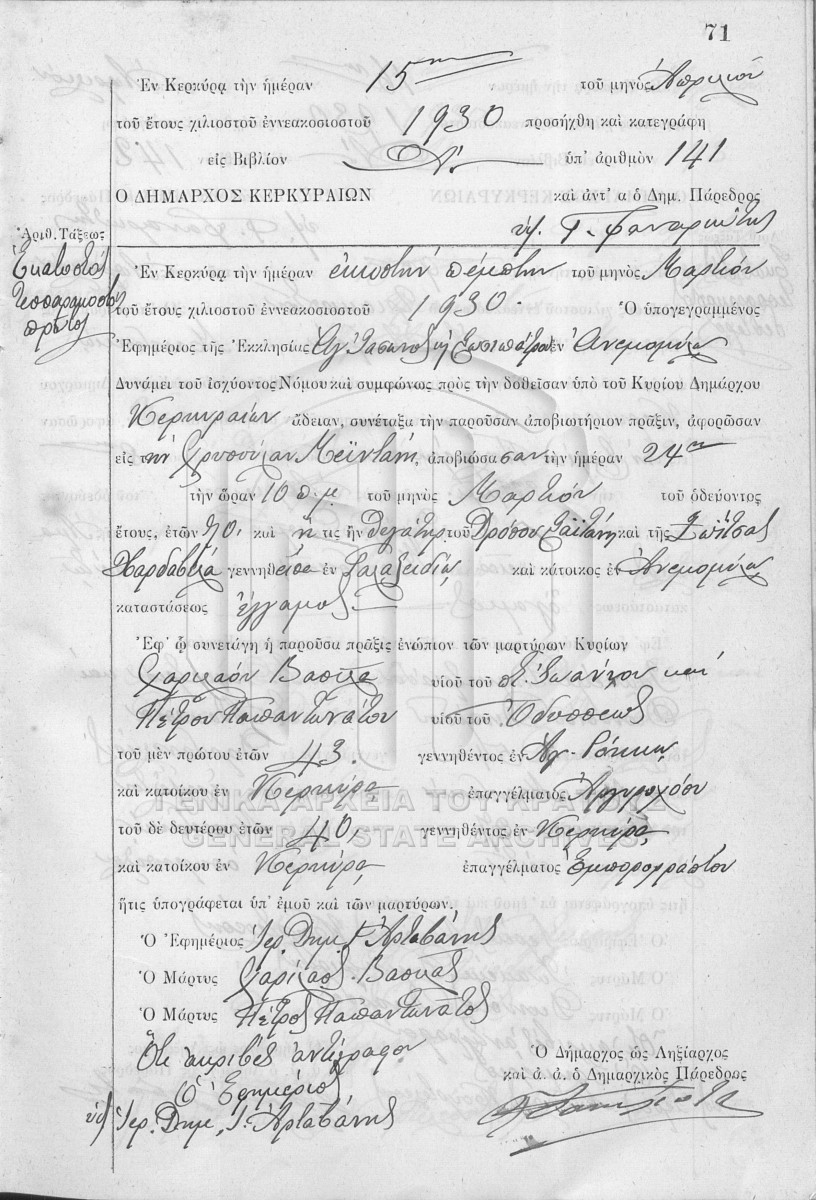 71
Ἐν Κερκύρᾳ τὴν ἡμέραν 15ην τοῦ μηνὸς Ἀπριλίου
τοῦ ἔτους χιλιοστοῦ ἐννεακοσιοστοῦ 1930 προσήχθη καὶ κατεγράφη
εἰς Βιβλίον Α΄. ὑπ' ἀριθμὸν 141
Ο ΔΗΜΑΡΧΟΣ ΚΕΡΚΥΡΑΙΩΝ καὶ ἀντ' α ὁ Δημ. Πάρεδρος
Γ. Φαναριώτης
Ἀριθ. Τάξεως
Ἑκατοστὸς
τεσσαρακοστὸς
πρῶτος
Ἐν Κερκύρᾳ τὴν ἡμέραν εἰκοστὴν πέμπτην τοῦ μηνὸς Μαρτίου
τοῦ ἔτους χιλιοστοῦ ἐννεακοσιοστοῦ 1930. Ὁ ὑπογεγραμμένος
Ἐφημέριος τῆς Ἐκκλησίας Ἁγ. Ἰάσωνος κ Σωσιπάτρου ἐν Ἀνεμομύλῳ
Δυνάμει τοῦ ἰσχύοντος Νόμου καὶ συμφώνως πρὸς τὴν δοθεῖσαν ὑπὸ τοῦ Κυρίου Δημάρχου
Κερκυραίων ἄδειαν, συνέταξα τὴν παροῦσαν ἀποβιωτήριον πρᾶξιν, ἀφορῶσαν
εἰς τὴν Χρυσούλαν Μεϊντάνη, ἀποβιώσασαν τὴν ἡμέραν 24ην
τὴν ὥραν 10 π.μ. τοῦ μηνὸς Μαρτίου τοῦ ὁδεύοντος
ἔτους, ἐτῶν 70. καὶ ἥ τις ἦν θυγάτηρ τοῦ Δρόσου Σαϊτάνη καὶ τῆς Ζωΐτσας
Χαρδαβέλα γεννηθεῖσα ἐν Γαλαξειδίῳ καὶ κάτοικος ἐν Ἀνεμομύλῳ
καταστάσεως ἔγγαμος
Ἐφ' ᾧ συνετάγη ἡ παροῦσα πρᾶξις ἐνώπιον τῶν μαρτύρων Κυρίων
Χαρίλαον Βασιλᾶ υἱοῦ τοῦ π. Ἰωάννου καὶ
Πέτρου Παπαντωνάτου υἱοῦ τοῦ Ὀδυσσέως
τοῦ μὲν πρώτου ἐτῶν 43. γεννηθέντος ἐν Ἁγ. Ρόκκῳ
καὶ κατοίκου ἐν Κερκύρᾳ ἐπαγγέλματος Ἀργυροχόου
τοῦ δὲ δευτέρου ἐτῶν 40, γεννηθέντος ἐν Κερκύρᾳ
καὶ κατοίκου ἐν Κερκύρᾳ ἐπαγγέλματος Ἐμπορορράπτου
ἥτις ὑπογράφεται ὑπ' ἐμοῦ καὶ τῶν μαρτύρων.
Ὁ Ἐφημέριος Ἱερ. Δημ. Ἰ. Ἀρταβάνης
Ὁ Μάρτυς Χαρίλαος Βασιλᾶς
Ὁ Μάρτυς Πέτρος Παπαντωνάτος
Ὅτι ἀκριβὲς ἀντίγραφον
Ὁ Ἐφημέριος
Ἱερ. Δημ. Ἰ. Ἀρταβάνης
Ὁ Δήμαρχος ὡς Ληξίαρχος
καὶ ἀ. ἀ. ὁ Δημαρχικὸς Πάρεδρος
ΓΕΝΙΚΑ ΑΡΧΕΙΑ ΤΟΥ ΚΡΑΤΟΥΣ
GENERAL STATE ARCHIVES